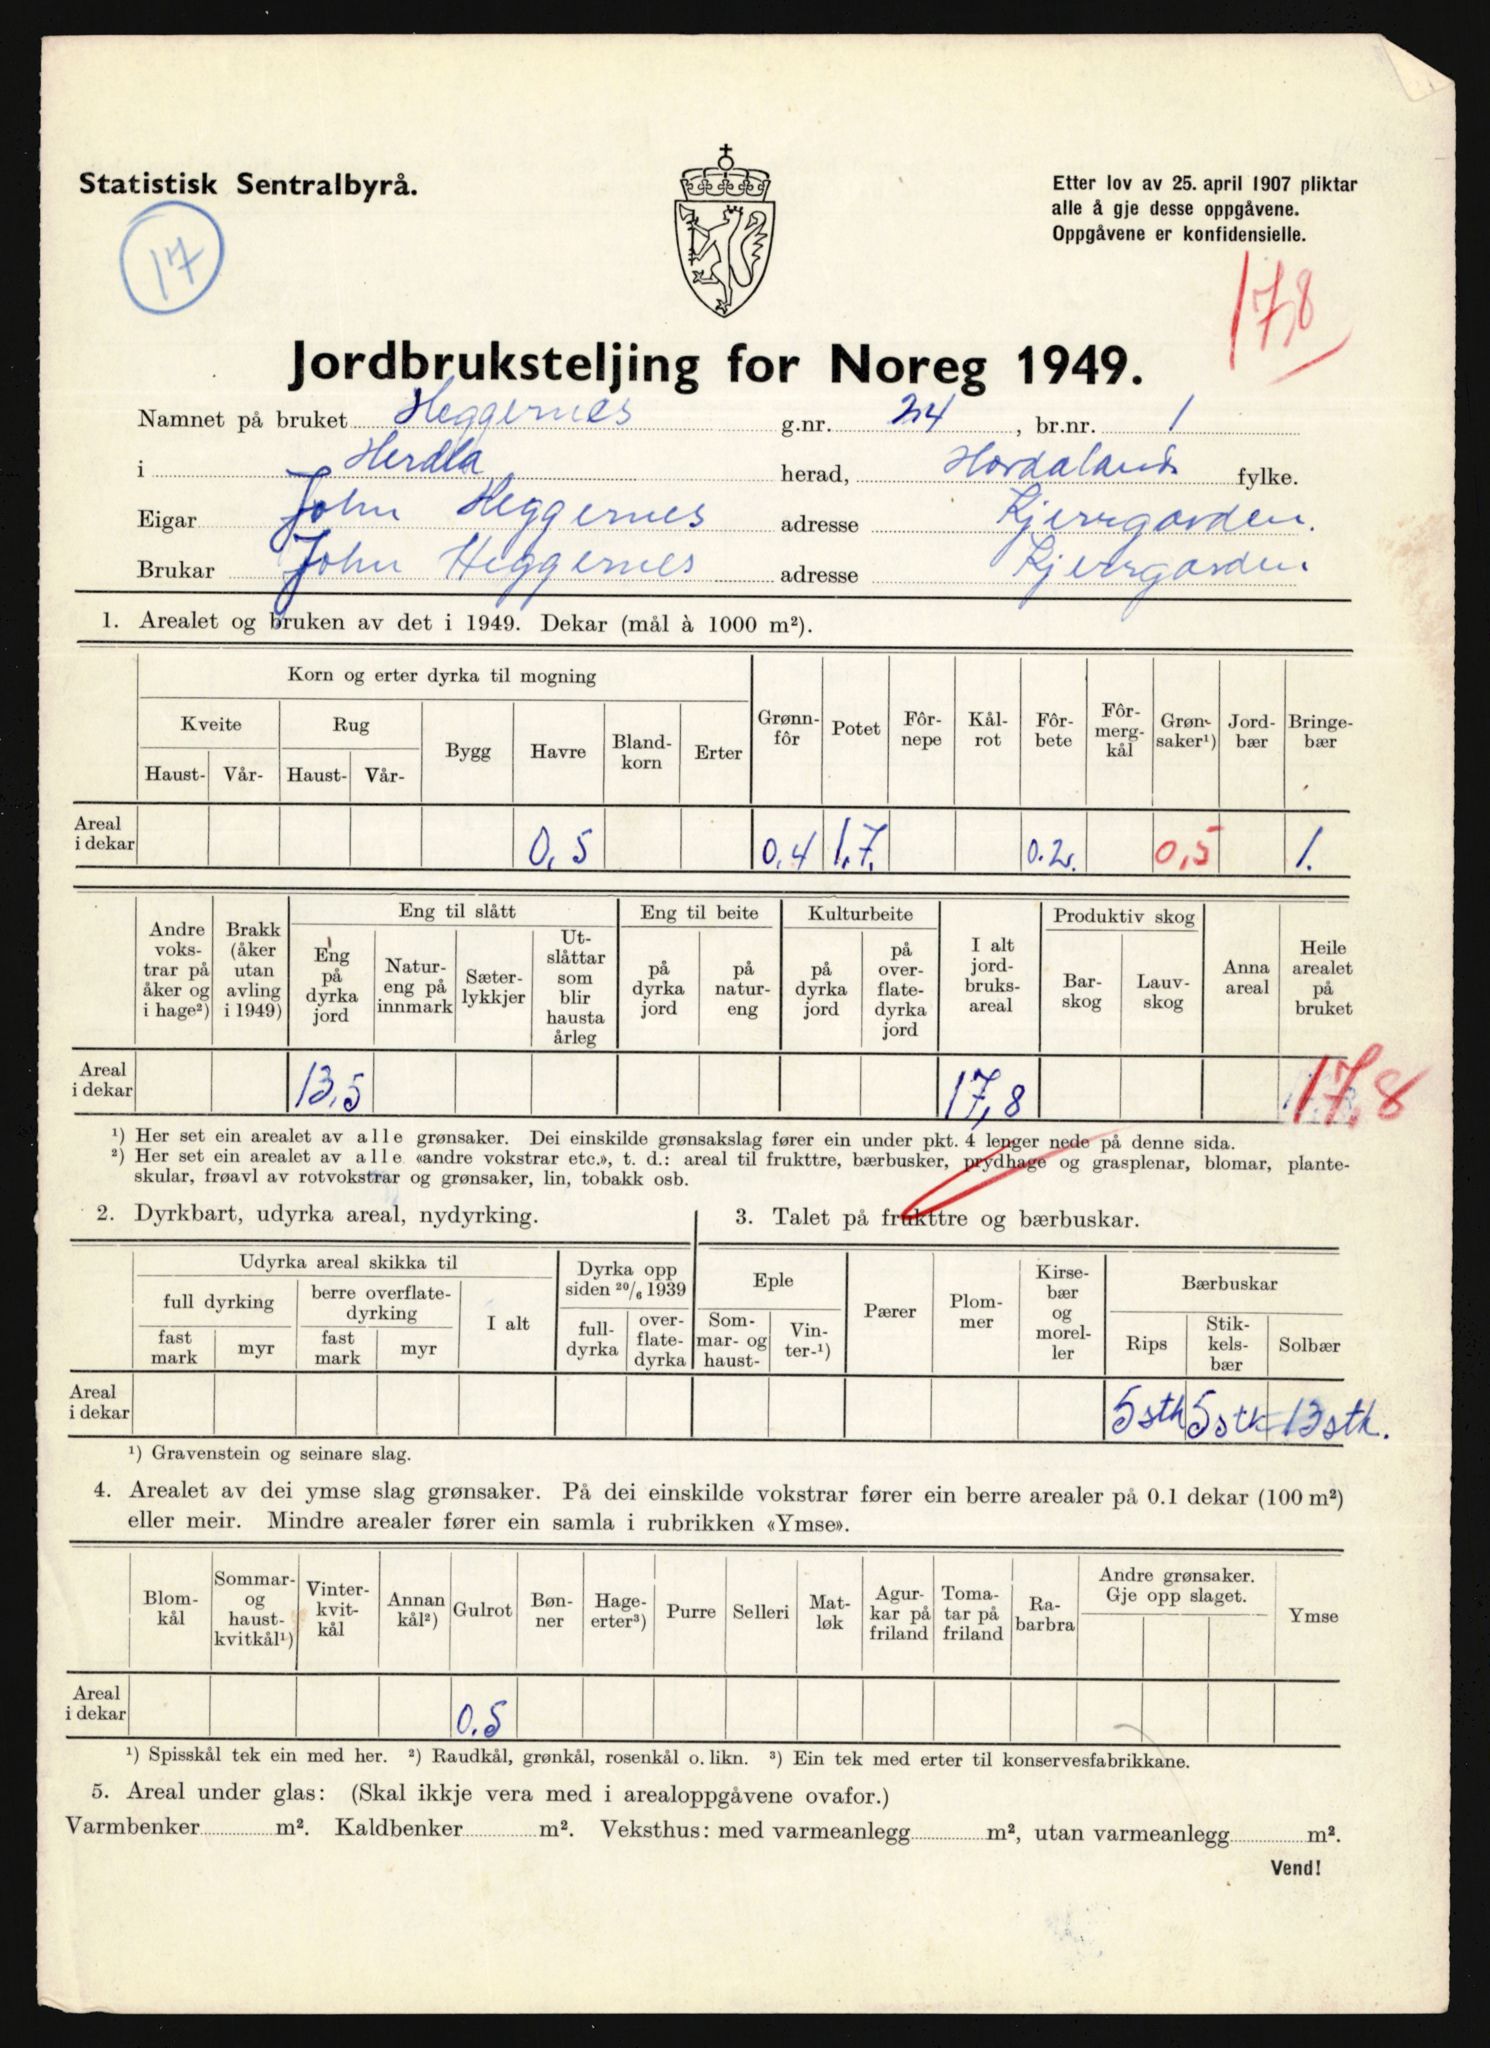 Statistisk Sentralbyrå.
Etter lov av 25. april 1907 pliktar
alle å gje desse oppgåvene.
Oppgåvene er konfidensielle.
17
17,8
Jordbruksteljing for Noreg 1949.
Namnet på bruket Heggernes g.nr. 24, br.nr. 1
i Herdla herad, Hordalands fylke.
Eigar John Heggernes adresse Kjerrgarden.
Brukar John Heggernes adresse Kjerrgarden
1. Arealet og bruken av det i 1949. Dekar (mål à 1000 m²).
Korn og erter dyrka til mogning
Kveite Rug Bygg Havre Bland-korn Erter Grønn-fôr Potet Fôr-nepe Kål-rot Fôr-bete Fôr-merg-kål Grøn-saker¹) Jord-bær Bringe-bær
Haust- Vår- Haust- Vår-
Areal i dekar 0,5 0,4 1,7. 0.2. 0,5 1.
Andre voks-trar på åker og i hage²) Brakk (åker utan avling i 1949) Eng til slått Eng til beite Kulturbeite I alt jord-bruks-areal Produktiv skog Anna areal Heile arealet på bruket
Eng på dyrka jord Natur-eng på innmark Sæter-lykkjer Ut-slåttar som blir hausta årleg på dyrka jord på natur-eng på dyrka jord på over-flate-dyrka jord Bar-skog Lauv-skog
Areal i dekar 13,5 17,8 17,8
¹) Her set ein arealet av alle grønsaker. Dei einskilde grønsakslag fører ein under pkt. 4 lenger nede på denne sida.
²) Her set ein arealet av alle «andre vokstrar etc.», t. d.: areal til frukttre, bærbusker, prydhage og grasplenar, blomar, plante-
skular, frøavl av rotvokstrar og grønsaker, lin, tobakk osb.
2. Dyrkbart, udyrka areal, nydyrking.
Udyrka areal skikka til Dyrka opp siden 20/6 1939
full dyrking berre overflate-dyrking I alt full-dyrka over-flate-dyrka
fast mark myr fast mark myr
Areal i dekar
3. Talet på frukttre og bærbuskar.
Eple Pærer Plom-mer Kirse-bær og morel-ler Bærbuskar
Som-mar- og haust- Vin-ter-¹) Rips Stik-kels-bær Solbær
5 stk 5 stk 13 stk.
¹) Gravenstein og seinare slag.
4. Arealet av dei ymse slag grønsaker. På dei einskilde vokstrar fører ein berre arealer på 0.1 dekar (100 m²)
eller meir. Mindre arealer fører ein samla i rubrikken «Ymse».
Blom-kål Sommar- og haust-kvitkål¹) Vinter-kvit-kål Annan kål²) Gulrot Bøn-ner Hage-erter³) Purre Selleri Mat-løk Agur-kar på friland Toma-tar på friland Ra-barbra Andre grønsaker. Gje opp slaget. Ymse
Areal i dekar 0.5
¹) Spisskål tek ein med her. ²) Raudkål, grønkål, rosenkål o. likn. ³) Ein tek med erter til konservesfabrikkane.
5. Areal under glas: (Skal ikkje vera med i arealoppgåvene ovafor.)
Varmbenker m². Kaldbenker m². Veksthus: med varmeanlegg m², utan varmeanlegg m².
Vend!